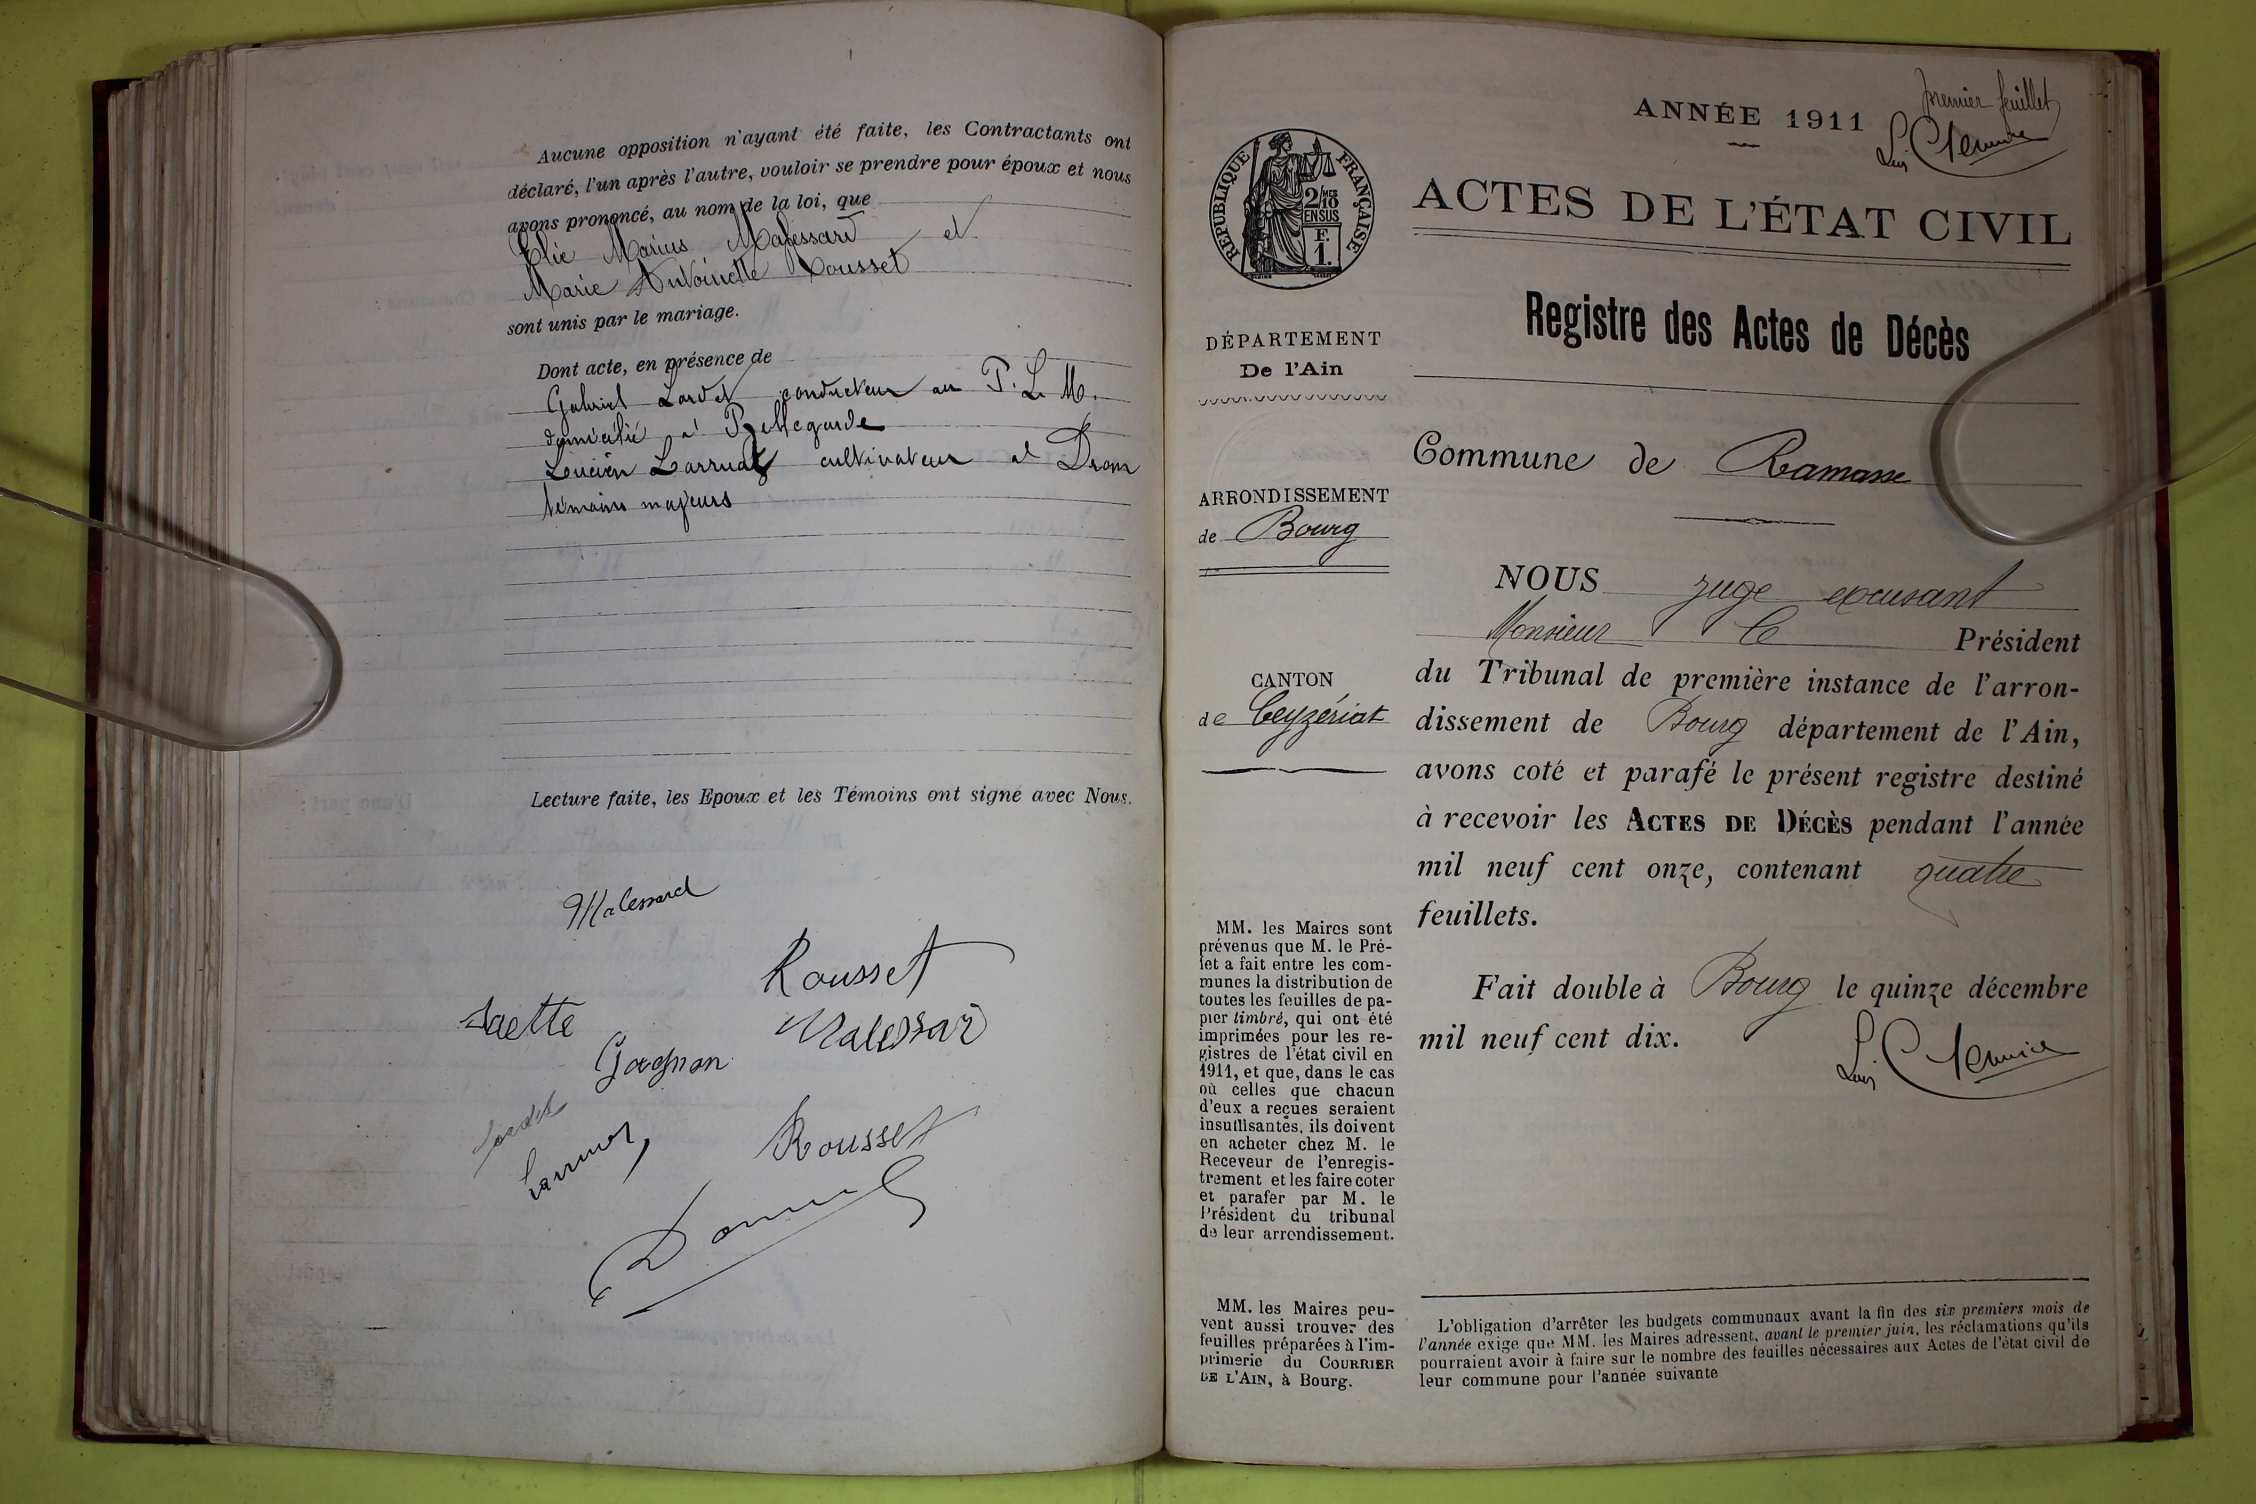 Aucune opposition n'ayant été faite, les Contractants ont
déclaré, l'un après l'autre, vouloir se prendre pour époux et nous
avons prononcé, au nom de la loi, que
Elie Marius Malessard et
Marie Antoinette Rousset
sont unis par le mariage.
Dont acte, en présence de
Gabriel Lardet conducteur au P. L. M.
domicilié à Bellegarde
Lucien Larruat cultivateur à Drom
témoins majeurs
Lecture faite, les Epoux et les Témoins ont signé avec Nous.
Malessard
Rousset
Malessard
Gagnon
Rousset
ANNÉE 1911
premier feuillet
ACTES DE L'ÉTAT CIVIL
RÉPUBLIQUE FRANÇAISE
2/10 MES
EN SUS
F.
1.
Registre des Actes de Décès
DÉPARTEMENT
De l'Ain
Commune de Ramasse
ARRONDISSEMENT
de Bourg
CANTON
de Ceyzériat
NOUS juge excusant
Monsieur le Président
du Tribunal de première instance de l'arron-
dissement de Bourg département de l'Ain,
avons coté et parafé le présent registre destiné
à recevoir les ACTES DE DÉCÈS pendant l'année
mil neuf cent onze, contenant quatre
feuillets.
Fait double à Bourg le quinze décembre
mil neuf cent dix.
MM. les Maires sont
prévenus que M. le Pré-
fet a fait entre les com-
munes la distribution de
toutes les feuilles de pa-
pier timbré, qui ont été
imprimées pour les re-
gistres de l'état civil en
1911, et que, dans le cas
où celles que chacun
d'eux a reçues seraient
insuffisantes, ils doivent
en acheter chez M. le
Receveur de l'enregis-
trement et les faire coter
et parafer par M. le
Président du tribunal
de leur arrondissement.
MM. les Maires peu-
vent aussi trouver des
feuilles préparées à l'im-
primerie du COURRIER
DE L'AIN, à Bourg.
L'obligation d'arrêter les budgets communaux avant la fin des six premiers mois de
l'année exige que MM. les Maires adressent, avant le premier juin, les réclamations qu'ils
pourraient avoir à faire sur le nombre des feuilles nécessaires aux Actes de l'état civil de
leur commune pour l'année suivante